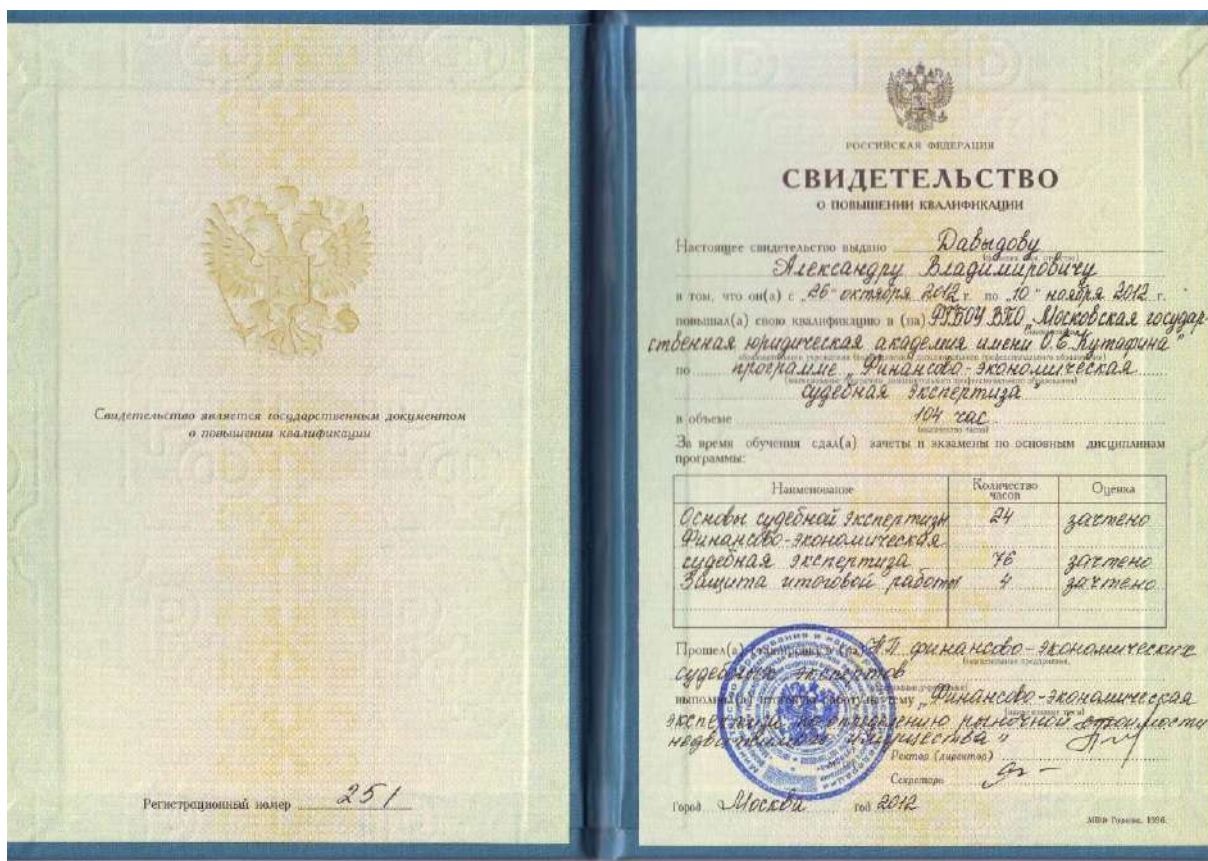 Свидетельство является государственным документом
о повышении квалификации
Регистрационный номер 251
РОССИЙСКАЯ ФЕДЕРАЦИЯ
СВИДЕТЕЛЬСТВО
О ПОВЫШЕНИИ КВАЛИФИКАЦИИ
Настоящее свидетельство выдано Давыдову
Александру Владимировичу
в том, что он(а) с „26" октября 2012 г. по „10" ноября 2012 г.
повышал(а) свою квалификацию в (на) ФГБОУ ВПО „Московская государ-
ственная юридическая академия имени О.Е.Кутафина"
по программе „Финансово-экономическая
судебная экспертиза"
в объеме 104 час.
(количество часов)
За время обучения сдал(а) зачеты и экзамены по основным дисциплинам
программы:
Наименование Количество часов Оценка
Основы судебной экспертизы 24 зачтено
Финансово-экономическая
судебная экспертиза 76 зачтено
Защита итоговой работы 4 зачтено
Прошел(а) стажировку в (на) НП финансово-экономических
судебных экспертов
выполнил(а) итоговую работу на тему „Финансово-экономическая
экспертиза по определению рыночной стоимости
недвижимого имущества"
Ректор (директор)
Секретарь
Город Москва год 2012
МПФ Гознака. 1996.